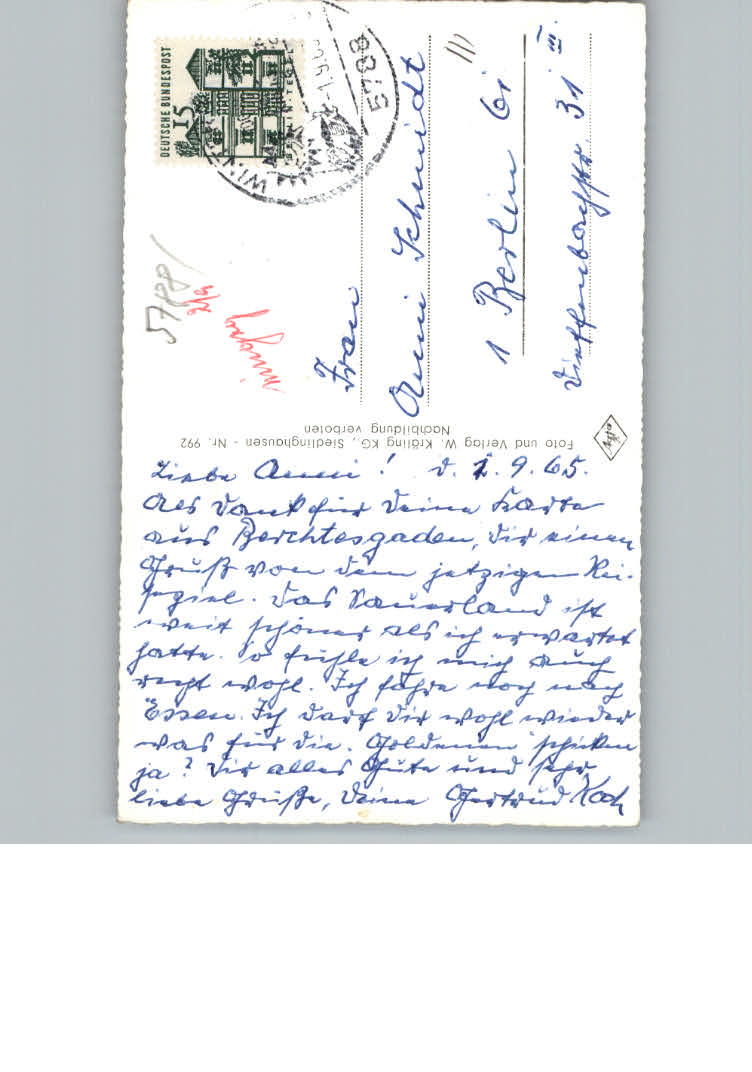 DEUTSCHE BUNDESPOST
15
BERLIN-TEGEL
-1.9.6
5788
WIN
5788/
2/9
Frau
Anni Schmidt
1 Berlin 61
Dieffenbachstr 31 III.
Foto und Verlag W. Kräling KG., Siedlinghausen - Nr. 992
Nachbildung verboten
Liebe Anni! d. 1. 9. 65.
Als Dank für Deine Karte
aus Berchtesgaden, Dir einen
Gruß von dem jetzigen Rei-
seziel. Das Sauerland ist
weit schöner als ich erwartet
hatte. So fühle ich mich auch
recht wohl. Ich fahre noch nach
Essen. Ich darf Dir wohl wieder
was für die "Goldenen" schicken
ja? Dir alles Gute und sehr
liebe Grüße, Deine Gertrud Koch